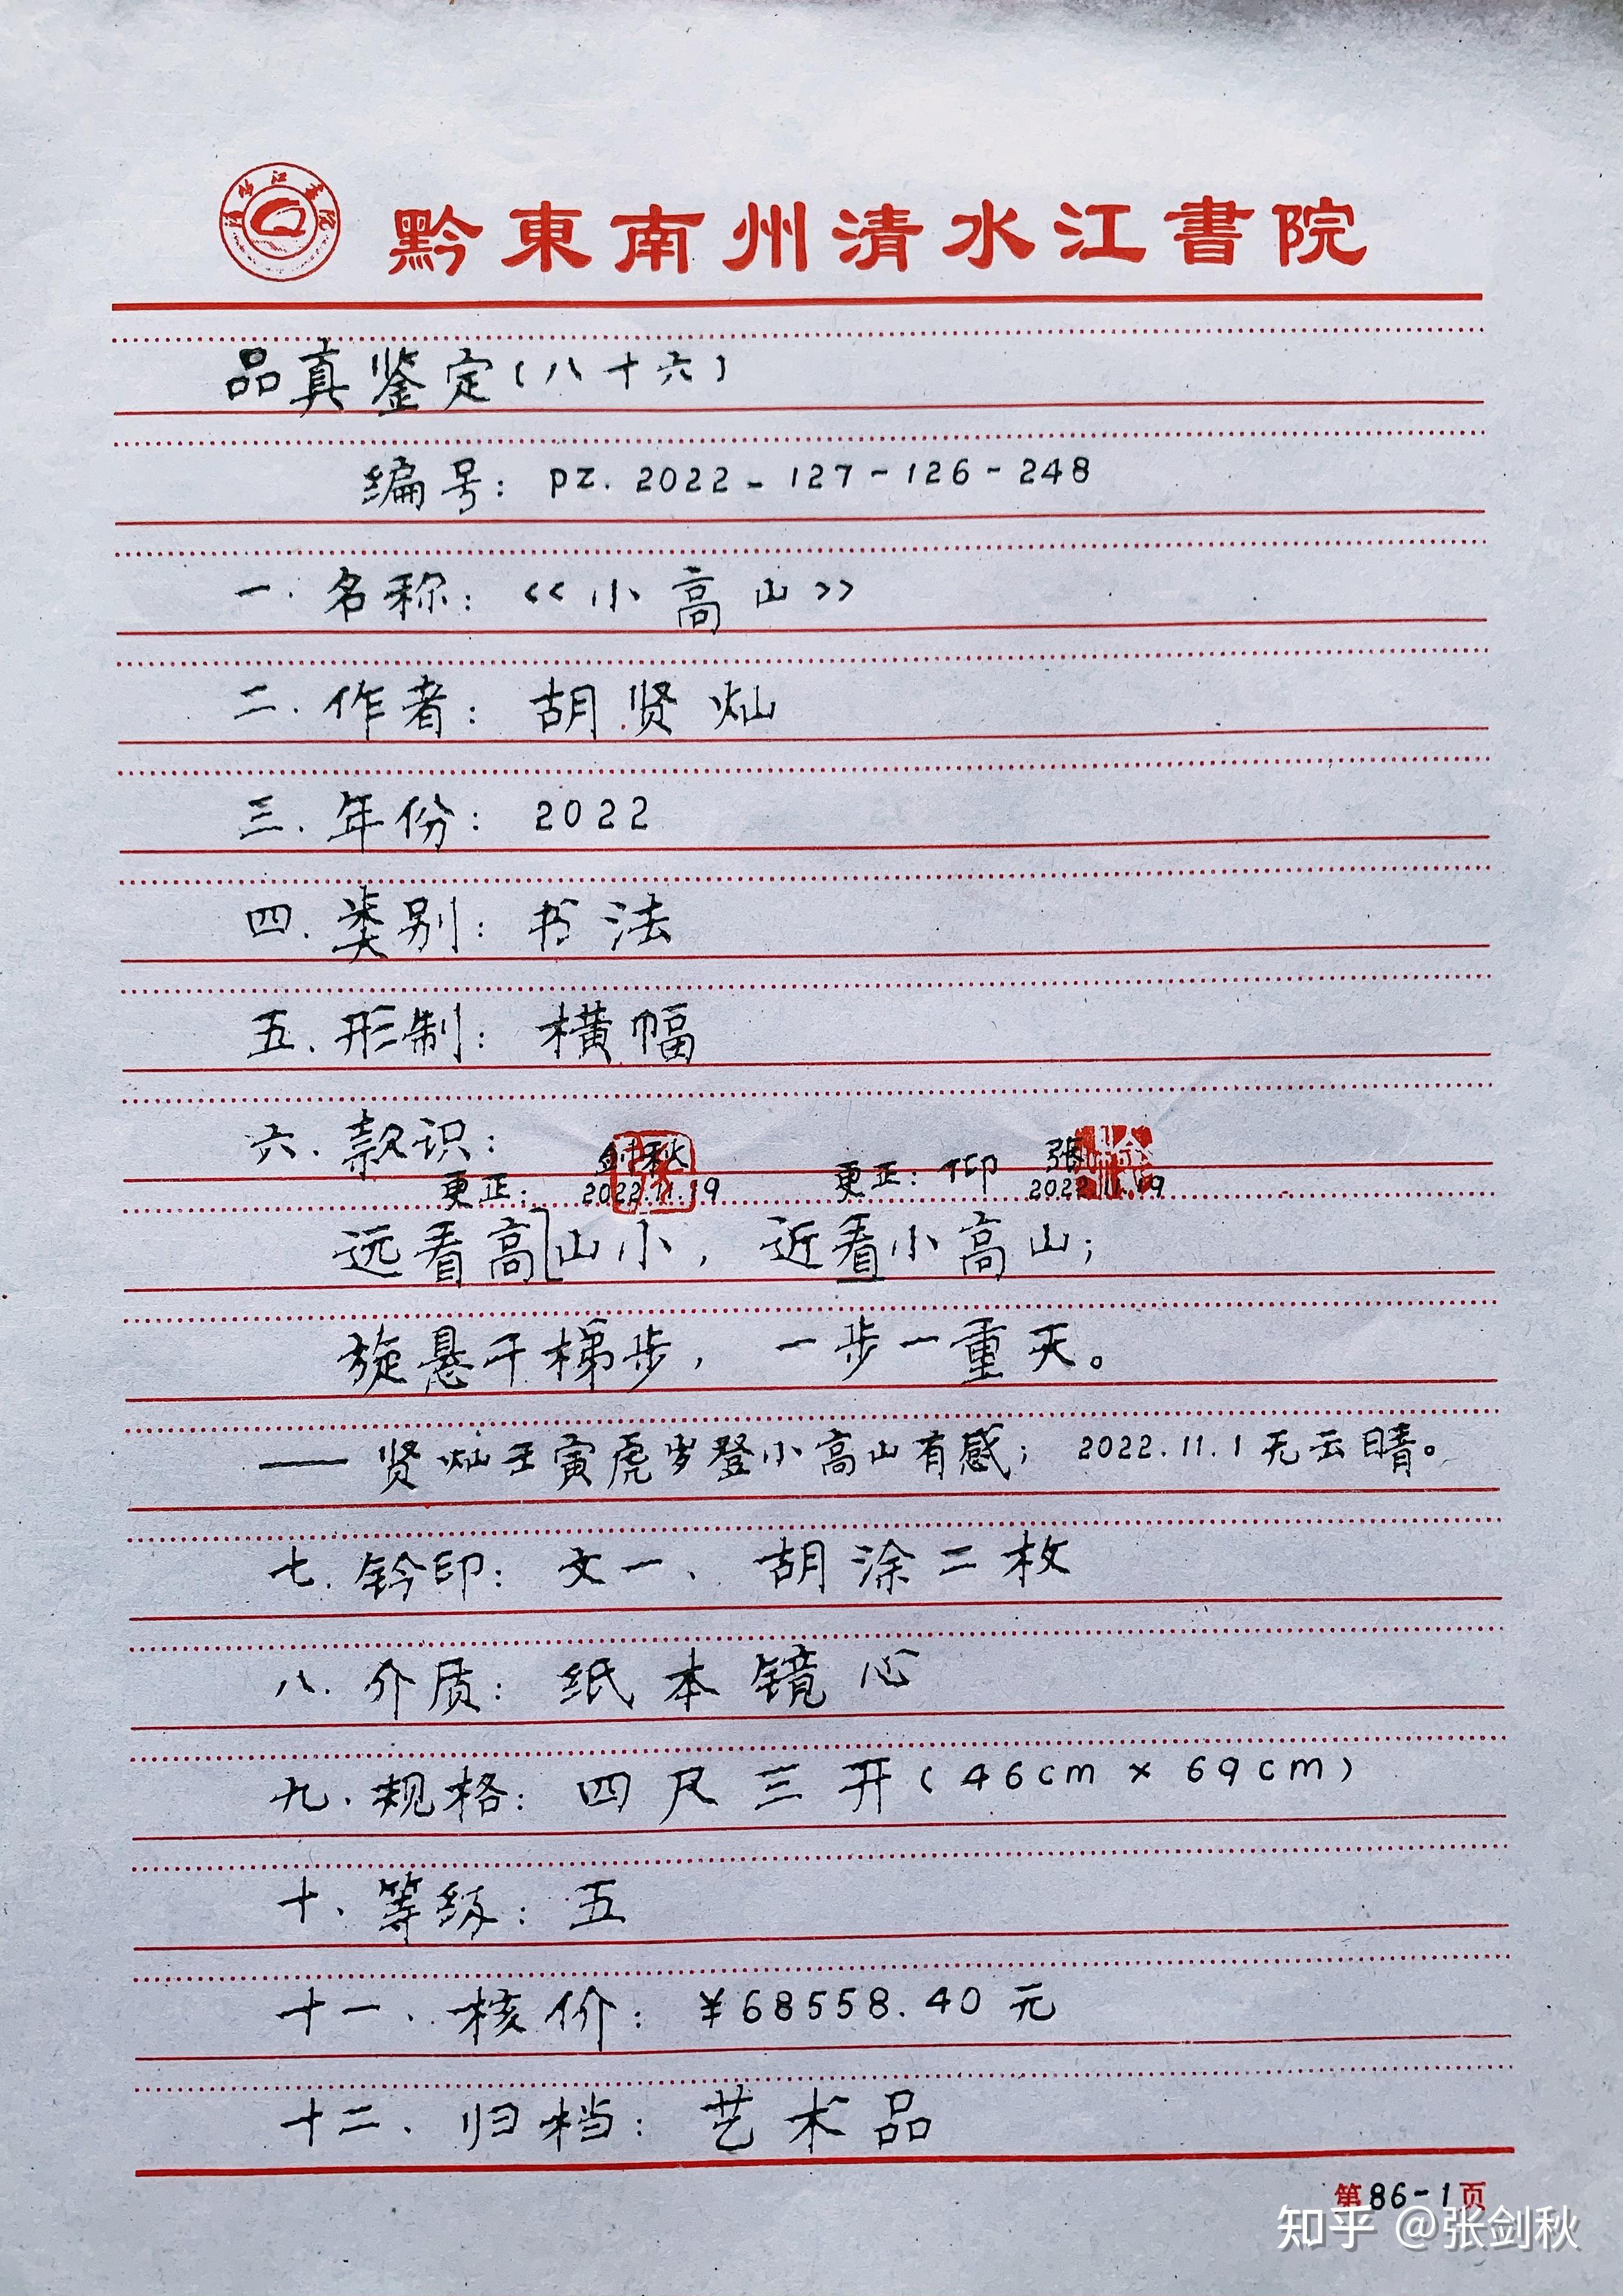 黔東南州清水江書院
品真鉴定(八十六)
编号: PZ. 2022-127-126-248
一. 名称: 《小高山》
二. 作者: 胡贤灿
三. 年份: 2022
四. 类别: 书法
五. 形制: 横幅
六. 款识:
更正: 剑秋 2022.11.19 更正: 仰 張 2022.11.19
远看高山小, 近看小高山;
旋悬千梯步, 一步一重天。
——贤灿壬寅虎岁登小高山有感; 2022.11.1 无云日晴。
七. 钤印: 文一、胡涂二枚
八. 介质: 纸本镜心
九. 规格: 四尺三开(46cm×69cm)
十. 等级: 五
十一. 核价: ¥68558.40元
十二. 归档: 艺术品
第86-1页
知乎 @张剑秋